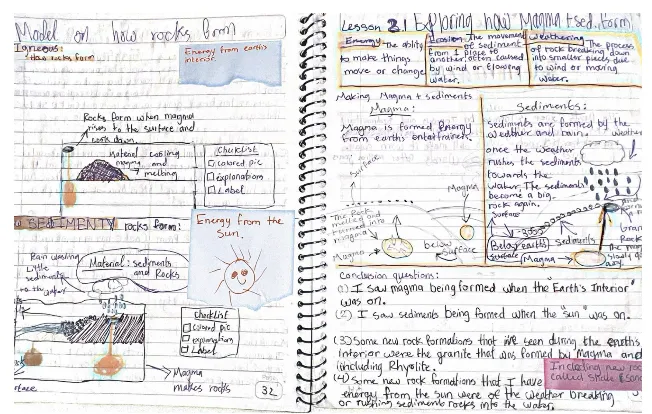 Model on how rocks form
Igneous:
How rocks form
Energy from earth's
interior.
Rocks form when magma
rises to the surface and
cools down.
Material cooling
magma and
melting
Checklist
colored pic
explanation
Label
SEDIMENTY rocks form:
Energy from the
Sun.
Rain washing
Little
sediments
to the water
Material: sediments
and Rocks
Checklist
colored pic
explanation
Label
Magma
makes rocks
32
Lesson 2! Exploring how Magma + sed. form
Energy The ability
to make things
move or change.
Erosion The movement
of sediment
from 1 place to
another, often caused
by wind or flowing
water.
Weathering The process
of rock breaking down
into smaller pieces due
to wind or moving
water.
Making Magma + sediments
Magma:
Magma is formed Energy
from earths
Surface
Magma
The Rock
melted and
formed into
magma
Magma
below
surface
Sediments:
Sediments are formed by the
weather and rain.
once the weather
rushes the sediments
towards the
water. The sediments
become a big
rock again.
surface
Below earths
surface
sediments
Magma
Conclusion questions:
(1) I saw magma being formed when the "Earth's Interior"
was on.
(2) I saw sediments being formed when the "sun" was on.
(3) Some new rock formations that ive seen during the earths
interior were the granite that was formed by Magma and
including Rhyolite.
(4) Some new rock formations that I have
energy from the sun were of the weather breaking
or rushing sediments rocks into the water.
Including new roc
called Shale &